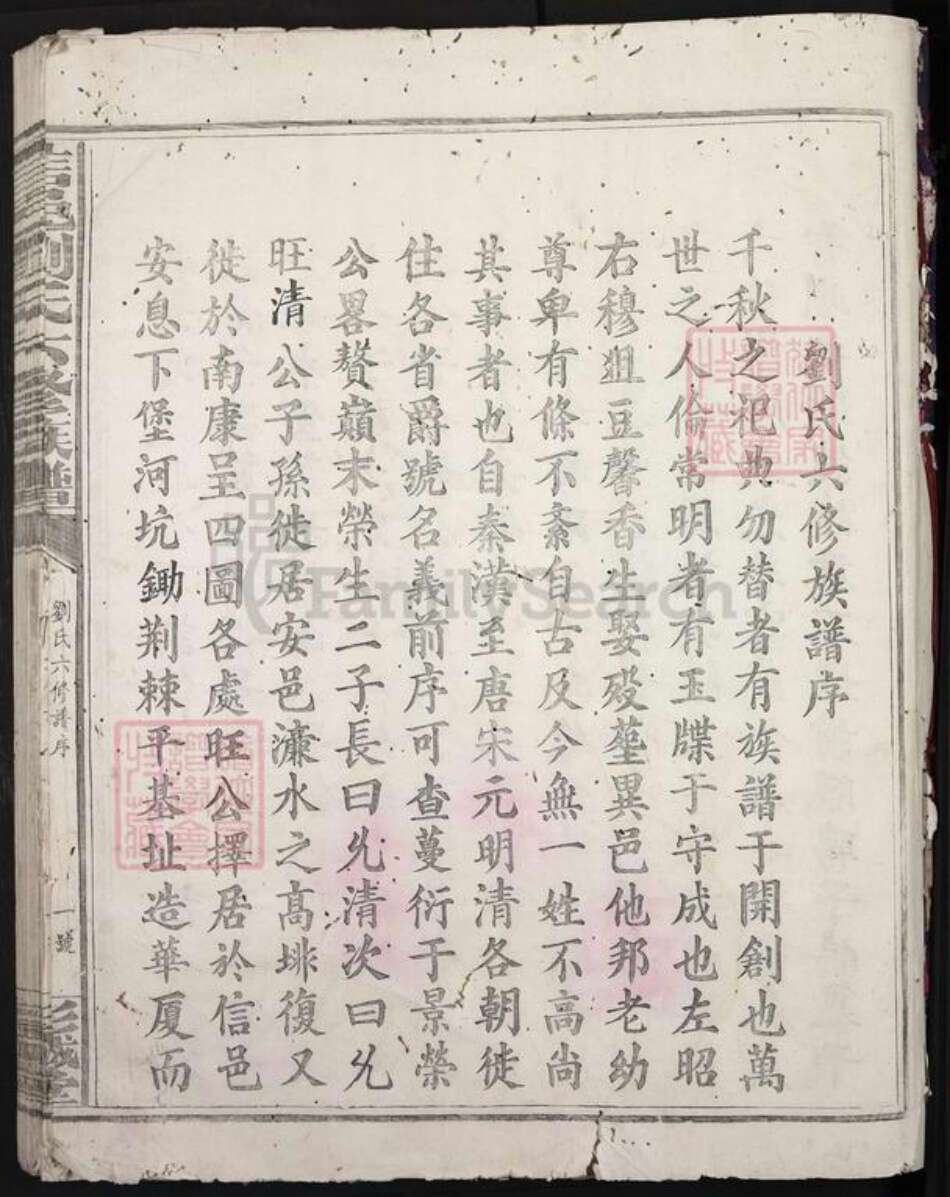 劉氏六修族譜序
千秋之祀典勿替者有族譜于開創也萬
世之人倫常明者有玉牒于守成也左昭
右穆俎豆馨香生娶歿塟異邑他邦老幼
尊卑有條不紊自古及今無一姓不高尚
其事者也自秦漢至唐宋元明清各朝徙
住各省爵號名義前序可查蔓衍于景榮
公畧贅巔末榮生二子長曰允清次曰允
旺清公子孫徙居安邑濂水之高排復又
徙於南康呈四圖各處旺公擇居於信邑
安息下堡河坑鋤荆棘平基址造華厦而
邑劉氏六修族譜
劉氏六修譜序
一號
彭城堂
FamilySearch